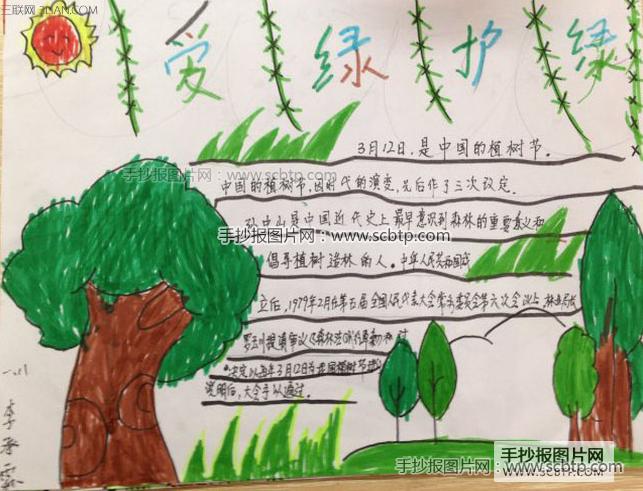 三联网 3LIAN.COM
爱绿护绿
3月12日,是中国的植树节。
中国的植树节,因时代的演变,先后作了三次改定。
手抄报图片网：www.scbtp.com
孙中山是中国近代史上最早意识到森林的重要意义和
手抄报图片网：www.scbtp.com
倡导植树造林的人。中华人民共和国成
立后,1979年2月在第五届全国人民代表大会常务委员会第六次会议上,林业
提请审议《森林法
决定以每年3月12日为我国植树节
说明后,大会予以通过。
一、八
李
手抄报图片网：www.scbtp.com
手抄报图片网
www.scbtp.com